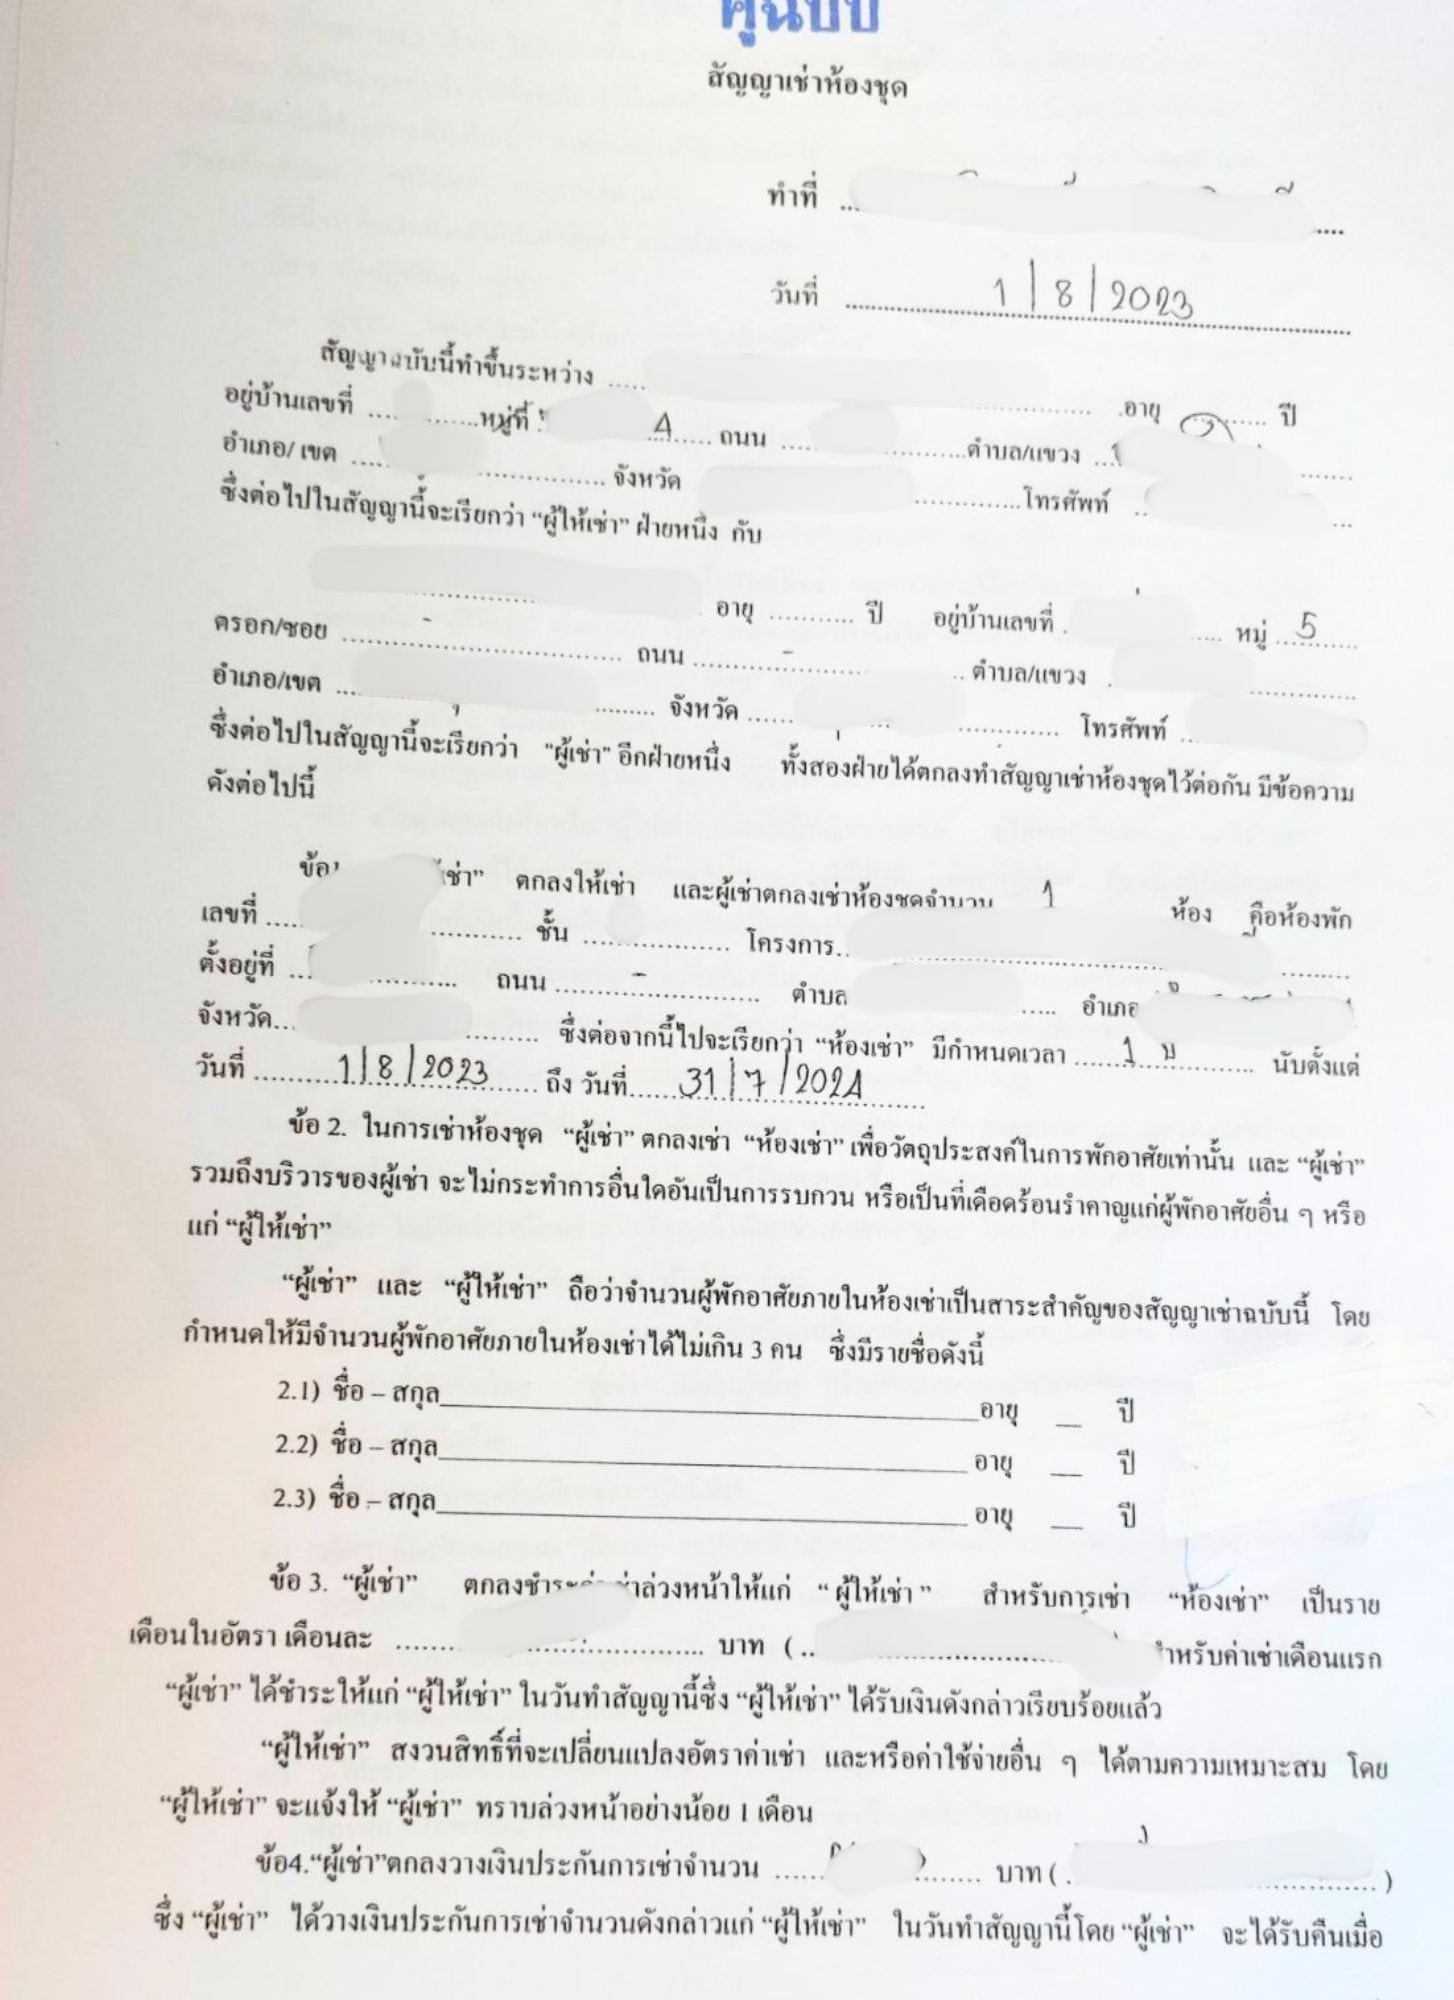 คู่ฉบับ
สัญญาเช่าห้องชุด
ทำที่ ... ....
วันที่ .......... 1/8/2023 ..........
สัญญาฉบับนี้ทำขึ้นระหว่าง ..... .....อายุ ...... ปี
อยู่บ้านเลขที่ .... .......หมู่ที่ ...... ถนน ..... ..........ตำบล/แขวง ...
อำเภอ/ เขต .... .............. จังหวัด ..............โทรศัพท์ .. ...
ซึ่งต่อไปในสัญญานี้จะเรียกว่า “ผู้ให้เช่า” ฝ่ายหนึ่ง กับ
อายุ ........... ปี อยู่บ้านเลขที่ . ..... หมู่ ...5......
ตรอก/ซอย .......... - .......... ถนน .......... - .......... ตำบล/แขวง . ..........
อำเภอ/เขต ... ......... จังหวัด ...... ............ โทรศัพท์ ...
ซึ่งต่อไปในสัญญานี้จะเรียกว่า "ผู้เช่า" อีกฝ่ายหนึ่ง ทั้งสองฝ่ายได้ตกลงทำสัญญาเช่าห้องชุดไว้ต่อกัน มีข้อความ
ดังต่อไปนี้
ข้อ เช่า” ตกลงให้เช่า และผู้เช่าตกลงเช่าห้องชุดจำนวน 1 ห้อง คือห้องพัก
เลขที่ .... ........... ชั้น ................ โครงการ.. ..........
ตั้งอยู่ที่ ... .......... ถนน .......... - .......... ตำบล ..... อำเภอ
จังหวัด... ......... ซึ่งต่อจากนี้ไปจะเรียกว่า “ห้องเช่า” มีกำหนดเวลา ......1 ป.......... นับตั้งแต่
วันที่ ..........1/8/2023.......... ถึง วันที่......31/7/2024..........
ข้อ 2. ในการเช่าห้องชุด “ผู้เช่า” ตกลงเช่า “ห้องเช่า” เพื่อวัตถุประสงค์ในการพักอาศัยเท่านั้น และ “ผู้เช่า”
รวมถึงบริวารของผู้เช่า จะไม่กระทำการอื่นใดอันเป็นการรบกวน หรือเป็นที่เดือดร้อนรำคาญแก่ผู้พักอาศัยอื่น ๆ หรือ
แก่ “ผู้ให้เช่า”
“ผู้เช่า” และ “ผู้ให้เช่า” ถือว่าจำนวนผู้พักอาศัยภายในห้องเช่าเป็นสาระสำคัญของสัญญาเช่าฉบับนี้ โดย
กำหนดให้มีจำนวนผู้พักอาศัยภายในห้องเช่าได้ไม่เกิน 3 คน ซึ่งมีรายชื่อดังนี้
2.1) ชื่อ – สกุล____________________อายุ __ ปี
2.2) ชื่อ – สกุล____________________ อายุ __ ปี
2.3) ชื่อ – สกุล____________________ อายุ __ ปี
ข้อ 3. “ผู้เช่า” ตกลงชำระค่าเช่าล่วงหน้าให้แก่ “ ผู้ให้เช่า ” สำหรับการเช่า “ห้องเช่า” เป็นราย
เดือนในอัตรา เดือนละ ....... .............. บาท (.. .......... สำหรับค่าเช่าเดือนแรก
“ผู้เช่า” ได้ชำระให้แก่ “ผู้ให้เช่า” ในวันทำสัญญานี้ซึ่ง “ผู้ให้เช่า” ได้รับเงินดังกล่าวเรียบร้อยแล้ว
“ผู้ให้เช่า” สงวนสิทธิ์ที่จะเปลี่ยนแปลงอัตราค่าเช่า และหรือค่าใช้จ่ายอื่น ๆ ได้ตามความเหมาะสม โดย
“ผู้ให้เช่า” จะแจ้งให้ “ผู้เช่า” ทราบล่วงหน้าอย่างน้อย 1 เดือน
ข้อ4.“ผู้เช่า”ตกลงวางเงินประกันการเช่าจำนวน ...... ........ บาท ( . .......... )
ซึ่ง “ผู้เช่า” ได้วางเงินประกันการเช่าจำนวนดังกล่าวแก่ “ผู้ให้เช่า” ในวันทำสัญญานี้โดย “ผู้เช่า” จะได้รับคืนเมื่อ